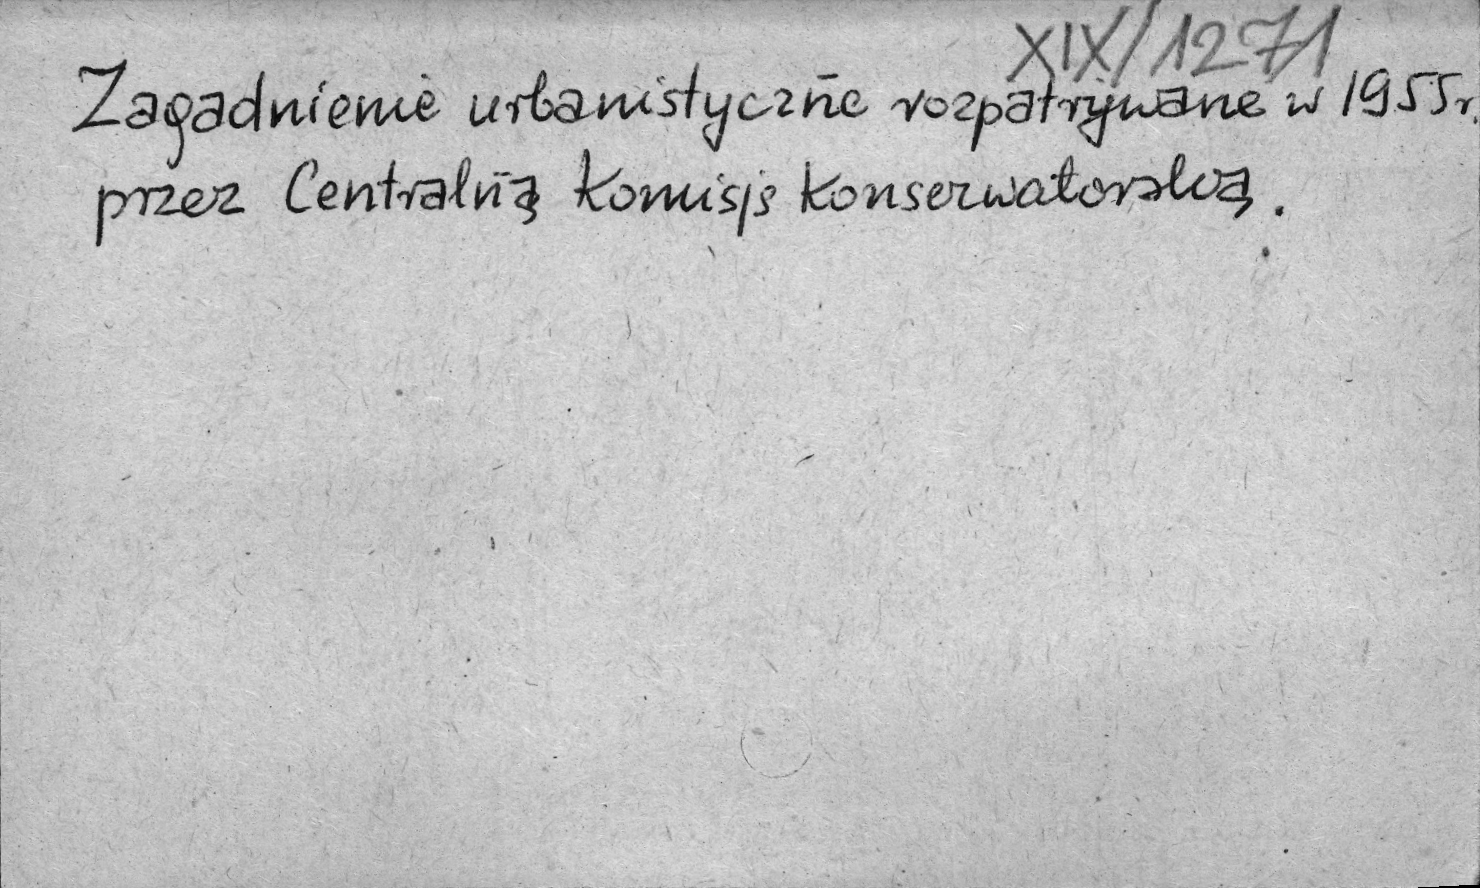 XIX/1271
Zagadnienie urbanistyczne rozpatrywane w 1955 r.
przez Centralną Komisję Konserwatorską.